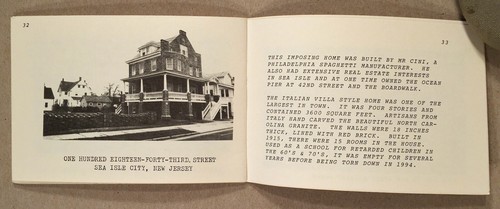 32
ONE HUNDRED EIGHTEEN-FORTY-THIRD, STREET
SEA ISLE CITY, NEW JERSEY
33
THIS IMPOSING HOME WAS BUILT BY MR CINI, A
PHILADELPHIA SPAGHETTI MANUFACTURER. HE
ALSO HAD EXTENSIVE REAL ESTATE INTERESTS
IN SEA ISLE AND AT ONE TIME OWNED THE OCEAN
PIER AT 42ND STREET AND THE BOARDWALK.
THE ITALIAN VILLA STYLE HOME WAS ONE OF THE
LARGEST IN TOWN. IT WAS FOUR STORIES AND
CONTAINED 3600 SQUARE FEET. ARTISANS FROM
ITALY HAND CARVED THE BEAUTIFUL NORTH CAR-
OLINA GRANITE. THE WALLS WERE 18 INCHES
THICK, LINED WITH RED BRICK. BUILT IN
1915, THERE WERE 15 ROOMS IN THE HOUSE.
USED AS A SCHOOL FOR RETARDED CHILDREN IN
THE 60'S & 70'S, IT WAS EMPTY FOR SEVERAL
YEARS BEFORE BEING TORN DOWN IN 1994.